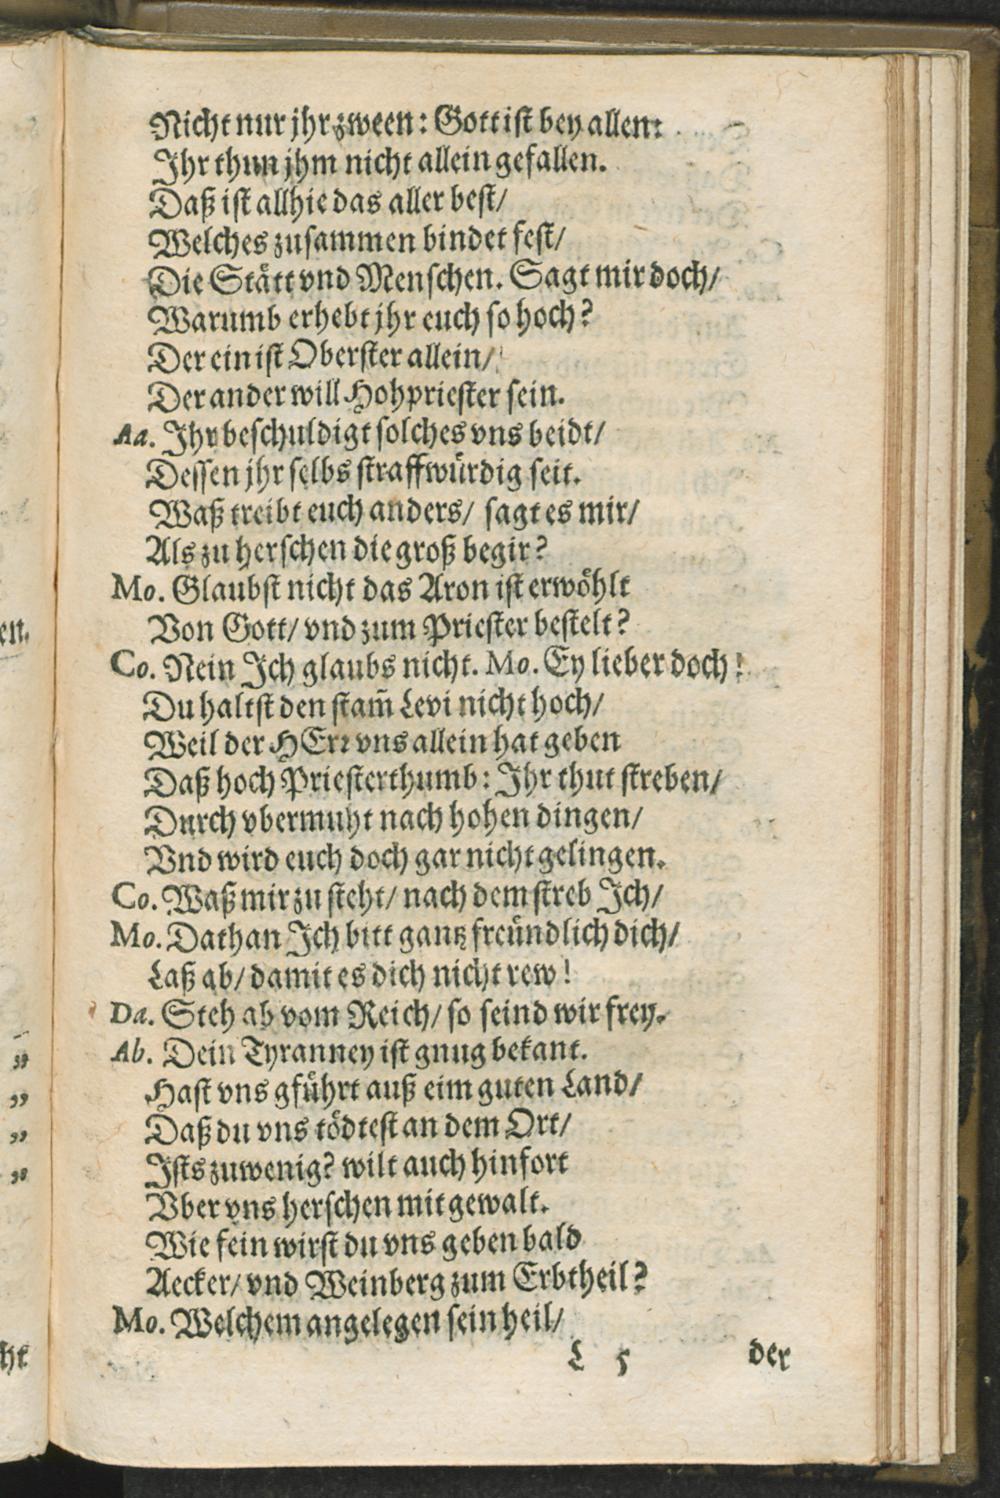 Nicht nur jhr zween: Gott ist bey allen:
Ihr thun jhm nicht allein gefallen.
Daß ist allhie das aller best/
Welches zusammen bindet fest/
Die Stätt vnd Menschen. Sagt mir doch/
Warumb erhebt jhr euch so hoch?
Der ein ist Oberster allein/
Der ander will Hohpriester sein.
Aa. Ihr beschuldigt solches vns beidt/
Dessen jhr selbs straffwürdig seit.
Waß treibt euch anders/ sagt es mir/
Als zu herschen die groß begir?
Mo. Glaubst nicht das Aron ist erwöhlt
Von Gott/ vnd zum Priester bestelt?
Co. Nein Ich glaubs nicht. Mo. Ey lieber doch!
Du haltst den stam̄ Levi nicht hoch/
Weil der HErr vns allein hat geben
Daß hoch Priesterthumb: Ihr thut streben/
Durch vbermuht nach hohen dingen/
Vnd wird euch doch gar nicht gelingen.
Co. Waß mir zu steht/ nach dem streb Ich/
Mo. Dathan Ich bitt gantz freündlich dich/
Laß ab/ damit es dich nicht rew!
Da. Steh ab vom Reich/ so seind wir frey.
Ab. Dein Tyranney ist gnug bekant.
Hast vns gführt auß eim guten Land/
Daß du vns tödtest an dem Ort/
Ists zuwenig? wilt auch hinfort
Vber vns herschen mit gewalt.
Wie fein wirst du vns geben bald
Aecker/ vnd Weinberg zum Erbtheil?
Mo. Welchem angelegen sein heil/
L 5 der
en.
„
„
„
„
ht